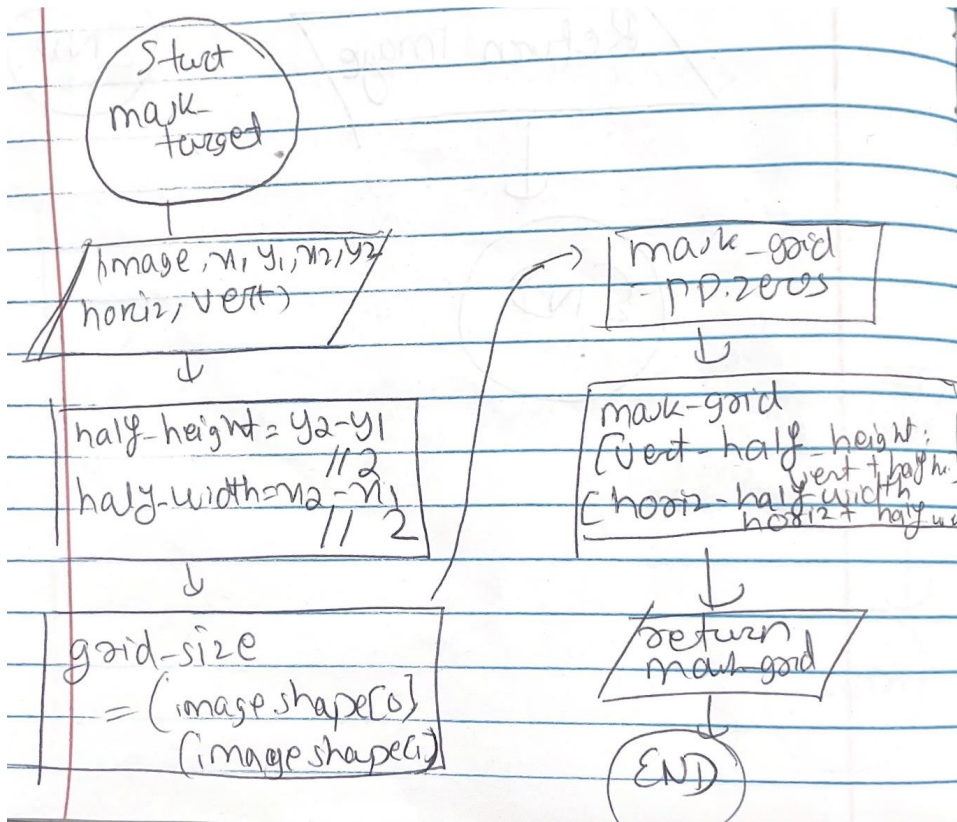 Start
mask-
target
image, x1, y1, x2, y2
horiz, vert)
half-height = y2-y1
//2
half-width = x2-x1
// 2
grid-size
= (image.shape[0]
(image.shape[1])
mask-grid
= np.zeros
mask-grid
[vert-half-height:
vert + half h
[horiz-half-width
horiz + half w
return
mask-grid
END